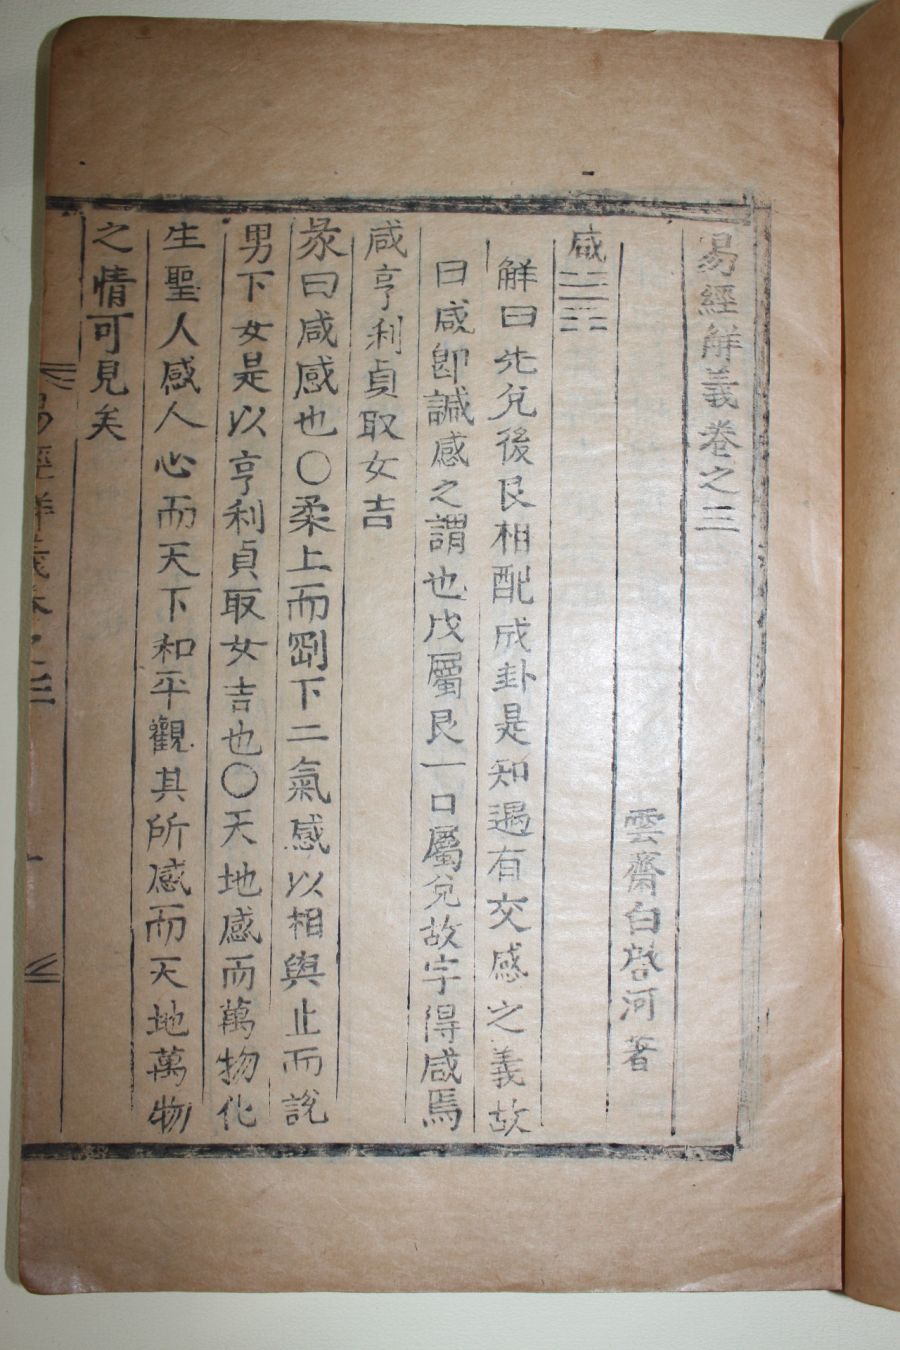 易經解義卷之三
雲齋白啓河著
咸
解曰先兌後艮相配成卦是知遇有交感之義故
曰咸卽諴感之謂也戊屬艮一口屬兌故字得咸焉
咸亨利貞取女吉
彖曰咸感也〇柔上而剛下二氣感以相與止而說
男下女是以亨利貞取女吉也〇天地感而萬物化
生聖人感人心而天下和平觀其所感而天地萬物
之情可見矣
易經解義卷之三